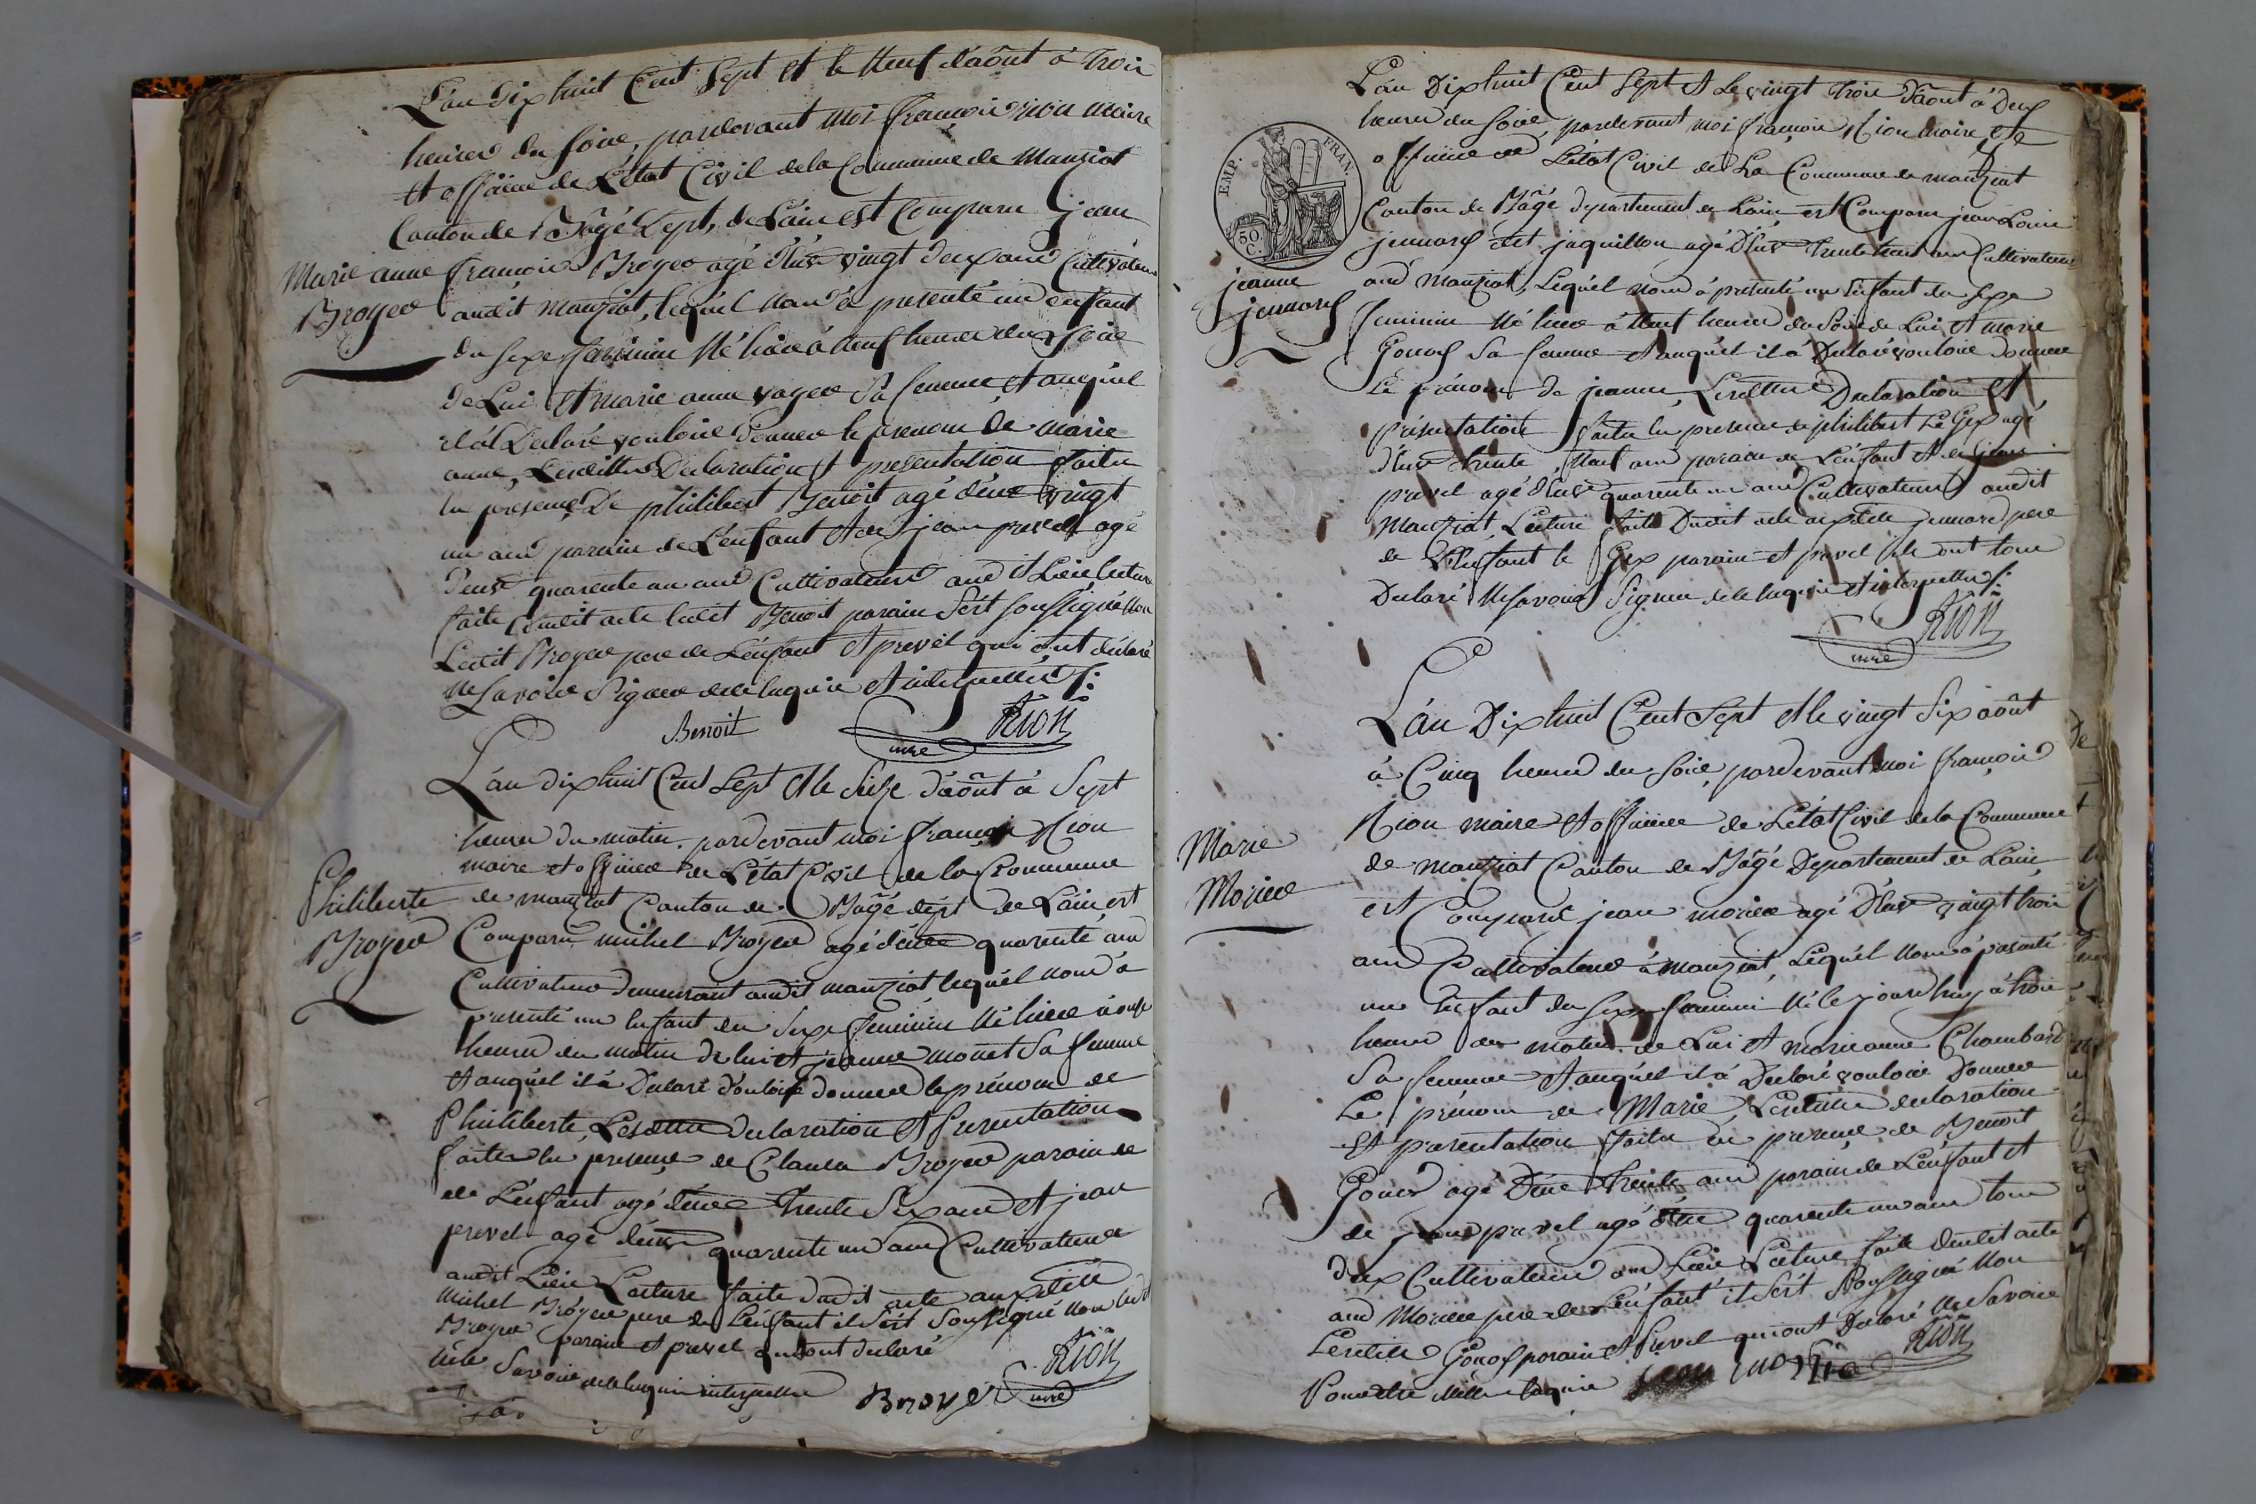 L'an dix huit Cent Sept et le Neuf d'août à trois
heures du soire, pardevant moi françois Rion maire
et officier de L'état Civil de la Commune de Manziat
Canton de Bâgé Dept. de L'ain est Comparu jean
françois Broyer agé d'env. vingt deux ans Cultivateur
Marie anne
Broyer
audit Manziat, lequel nous à presenté un enfant
du sexe feminin Né hier à neuf heures du soire
de Lui et marie anne voyer Sa femme, et auquel
il à Declaré vouloire donner le prenom de marie
anne, Lesdittes Declaration et presentation faites
en presence De philibert Benoit agé d'env. vingt
un ans parain de L'enfant et de jean prevel agé
d'env. quarente un ans Cultivateurs aud it Lieu lecture
faite dudit acte ledit Benoit parain s'est soussigné Non
Ledit Broyer pere de L'enfant et prevel qui ont déclaré
Ne Savoire Signer de ce enquis et interpellés /:
Benoit
Rion
mre
L'an dix huit Cent Sept et le Seize d'août à Sept
heures du matin pardevant moi françois Rion
maire et officier de L'état Civil de la Commune
Philiberte
Broyer
de manziat Canton de Bâgé dept de L'ain est
Comparu michel Broyer agé d'env. quarente ans
Cultivateur demeurant audit manziat lequel nous à
presenté un Enfant du Sexe feminin Né hier à onze
heures du matin de lui et jeanne monet Sa femme
et auquel il à Declaré vouloire donner le prénom de
Philiberte, Lesdittes declaration et presentation
faites en presence de Claude Broyer parain de
de L'enfant agé d'env. trente Six ans et jean
prevel agé d'env. quarente un ans Cultivateurs
audit Lieu Lecture faite dudit acte auxdits
michel Broyer pere de L'enfant il s'est soussigné non ledit
Broyer parain et prevel qui ont declaré
ne Savoire de ce enquis interpellés
Broyer
Rion
mre
EMP. FRAN.
50 C.
L'an Dix huit Cent Sept et le vingt trois d'août à Deux
heures du soire pardevant moi françois Rion maire et
officier de L'état Civil de La Commune de manziat
Canton de Bâgé departement de L'ain est Comparu jean Louis
jennard dit jaquillon agé D'env. trente huit ans Cultivateur
jeanne
jennard
aud Manziat, Lequel nous à présenté un Enfant du sexe
feminin Né hier à Neuf heures du Soire de Lui et marie
Gonod Sa femme et auquel il à Declaré vouloire donner
Le prénom de jeanne, Lesdittes Declaration et
présentation faites en presence de philibert Le Gex agé
d'env. trente Neuf ans parain de L'enfant et de jean
prevel agé d'env. quarente un ans Cultivateurs audit
Manziat, Lecture faite Dudit acte auxdits jennard pere
de L'enfant le Gex parain et prevel ils ont tous
Declaré Ne Savoire Signer de ce enquis et interpellés /:
Rion
mre
L'an Dix huit Cent Sept et le vingt Six août
à Cinq heures du Soire, pardevant moi françois
Rion maire et officier de L'état Civil de la Commune
Marie
Morier
de manziat Canton de Bâgé Departement de L'ain
est Comparu jean morier agé D'env. vingt trois
ans Cultivateur à manziat, Lequel nous à presenté
un Enfant du Sexe feminin Né le jourd'huy à trois
heures du matin de Lui et marie anne Chambard
Sa femme et auquel il à Declaré vouloire Donner
Le prénom de Marie, Lesdittes declaration
et presentation faites en presence de Benoit
Gonod agé D'env. trente ans parain de L'enfant et
de jean prevel agé d'env. quarente un ans tous
deux Cultivateurs aud Lieu Lecture faite dudit acte
aud Morier pere de L'enfant il s'est soussigné Non
Lesdits Gonod parain et Prevel qui ont Declaré Ne Savoire
Rion
jean morier